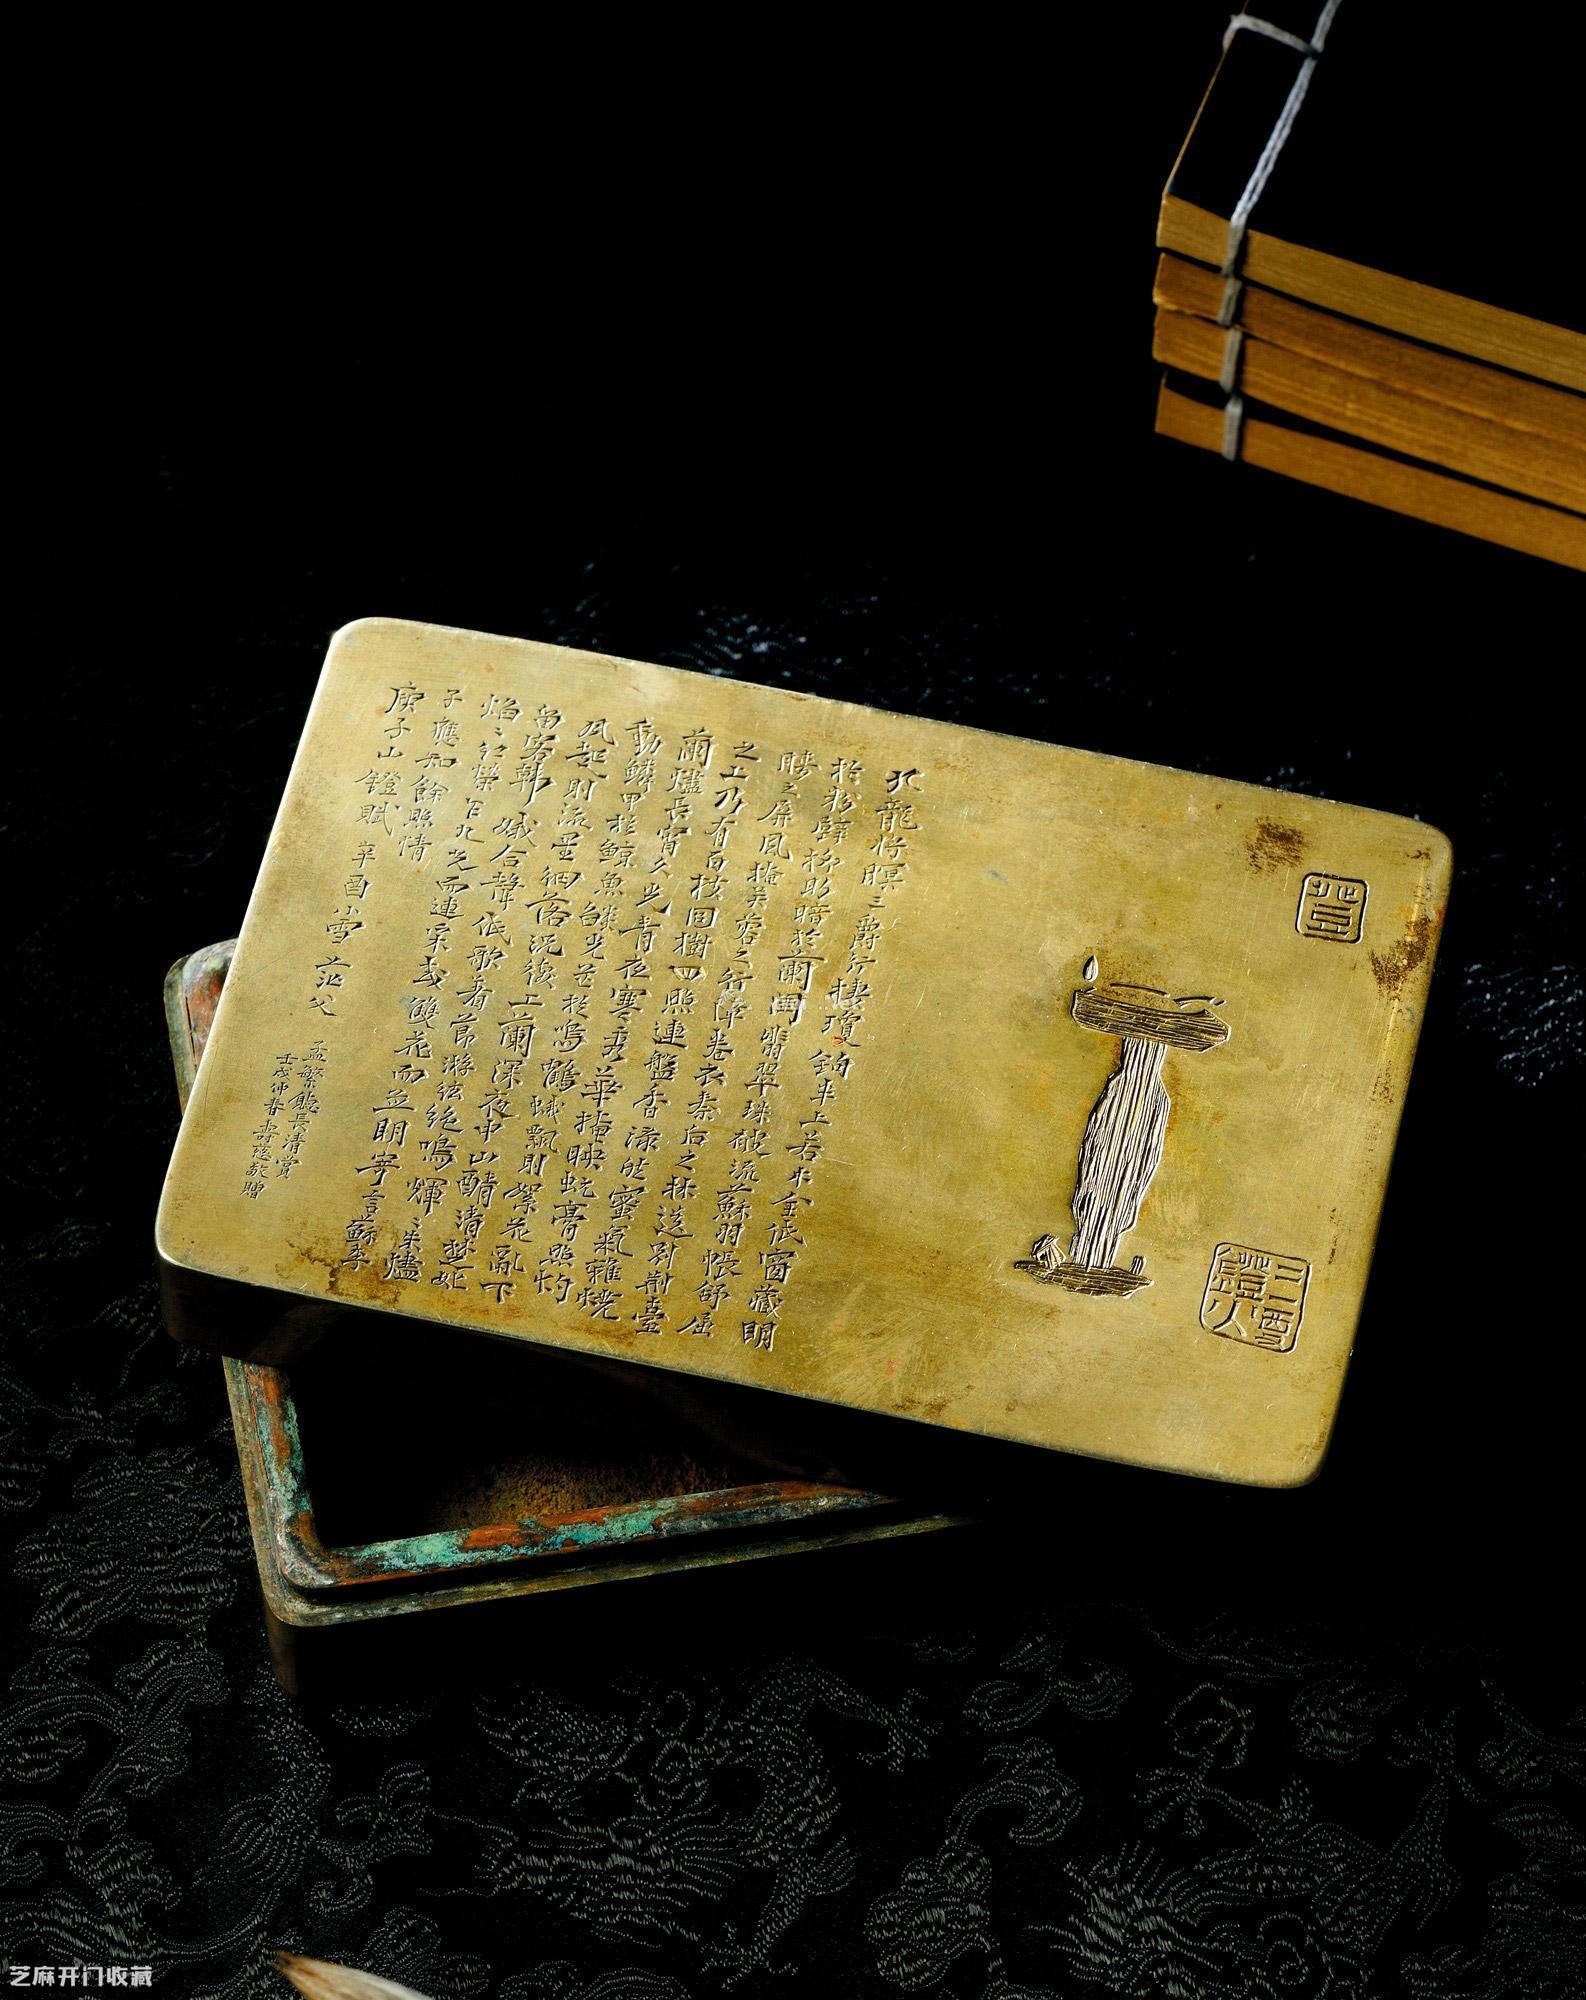 九龍將暝三爵行棲瓊鉤半上若木全低窗藏明
於粉壁柳助暗於蘭閨翡翠珠被流蘇羽帳舒屈
膝之屏風掩芙蓉之行障卷衣秦后之牀送別荊臺
之上乃有百枝同樹四照連盤香添然蜜氣雜燒
蘭燼長宵久光青夜寒秀華掩映蚖膏照灼
動鱗甲於鯨魚燄光芒於鳴鶴蛾飄則絮花亂下
風起則流星細落況復上蘭深夜中山醑清楚妃
留客韓娥合聲低歌著節游絃絕鳴輝〻朱燼
焰〻紅榮乍九光而連采或雙花而並明寄言蘇季
子應知餘照情
庾子山鐙賦 辛酉小雪 茫父
孟繁廳長清賞
壬戌仲春壽蔭敬贈
芝麻开门收藏